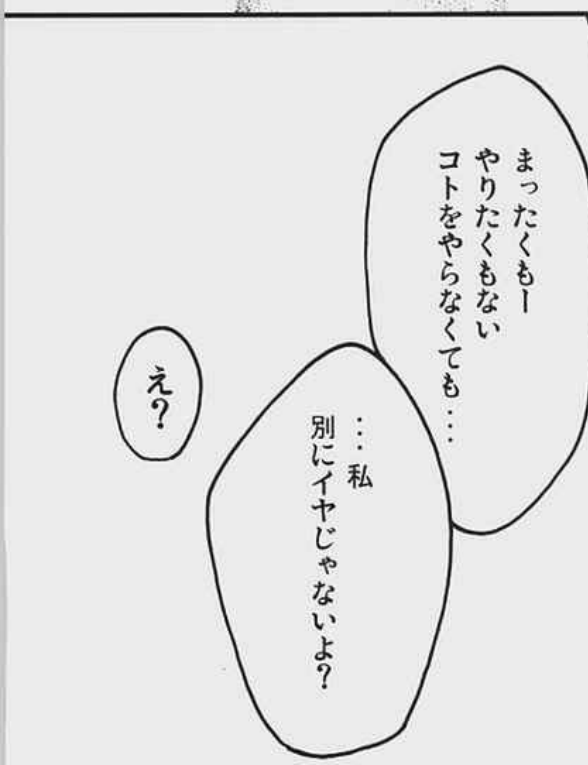 まったくもー
やりたくもない
コトをやらなくても...
...私
別にイヤじゃないよ?
え?